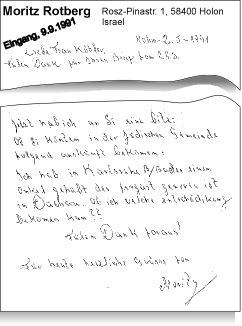 Moritz Rotberg
Rosz-Pinastr. 1, 58400 Holon
Israel
Eingang, 9.9.1991
Holon - 2.9.-1991
Liebe Frau
Vielen Dank für Ihren Brief vom
Jetzt hab ich an Sie eine bite:
Ob Si könten in der Jüdischen Gemeinde
folgend auskunft bekomen:
Ich hab in Karlsruhe B/Baden einen
onkel gehabt der
in Dachau. Ob ich welche entschädikung
bekomen kan??
Filen Dank foraus!
Für heute herzliche Grüsse von
Moritz